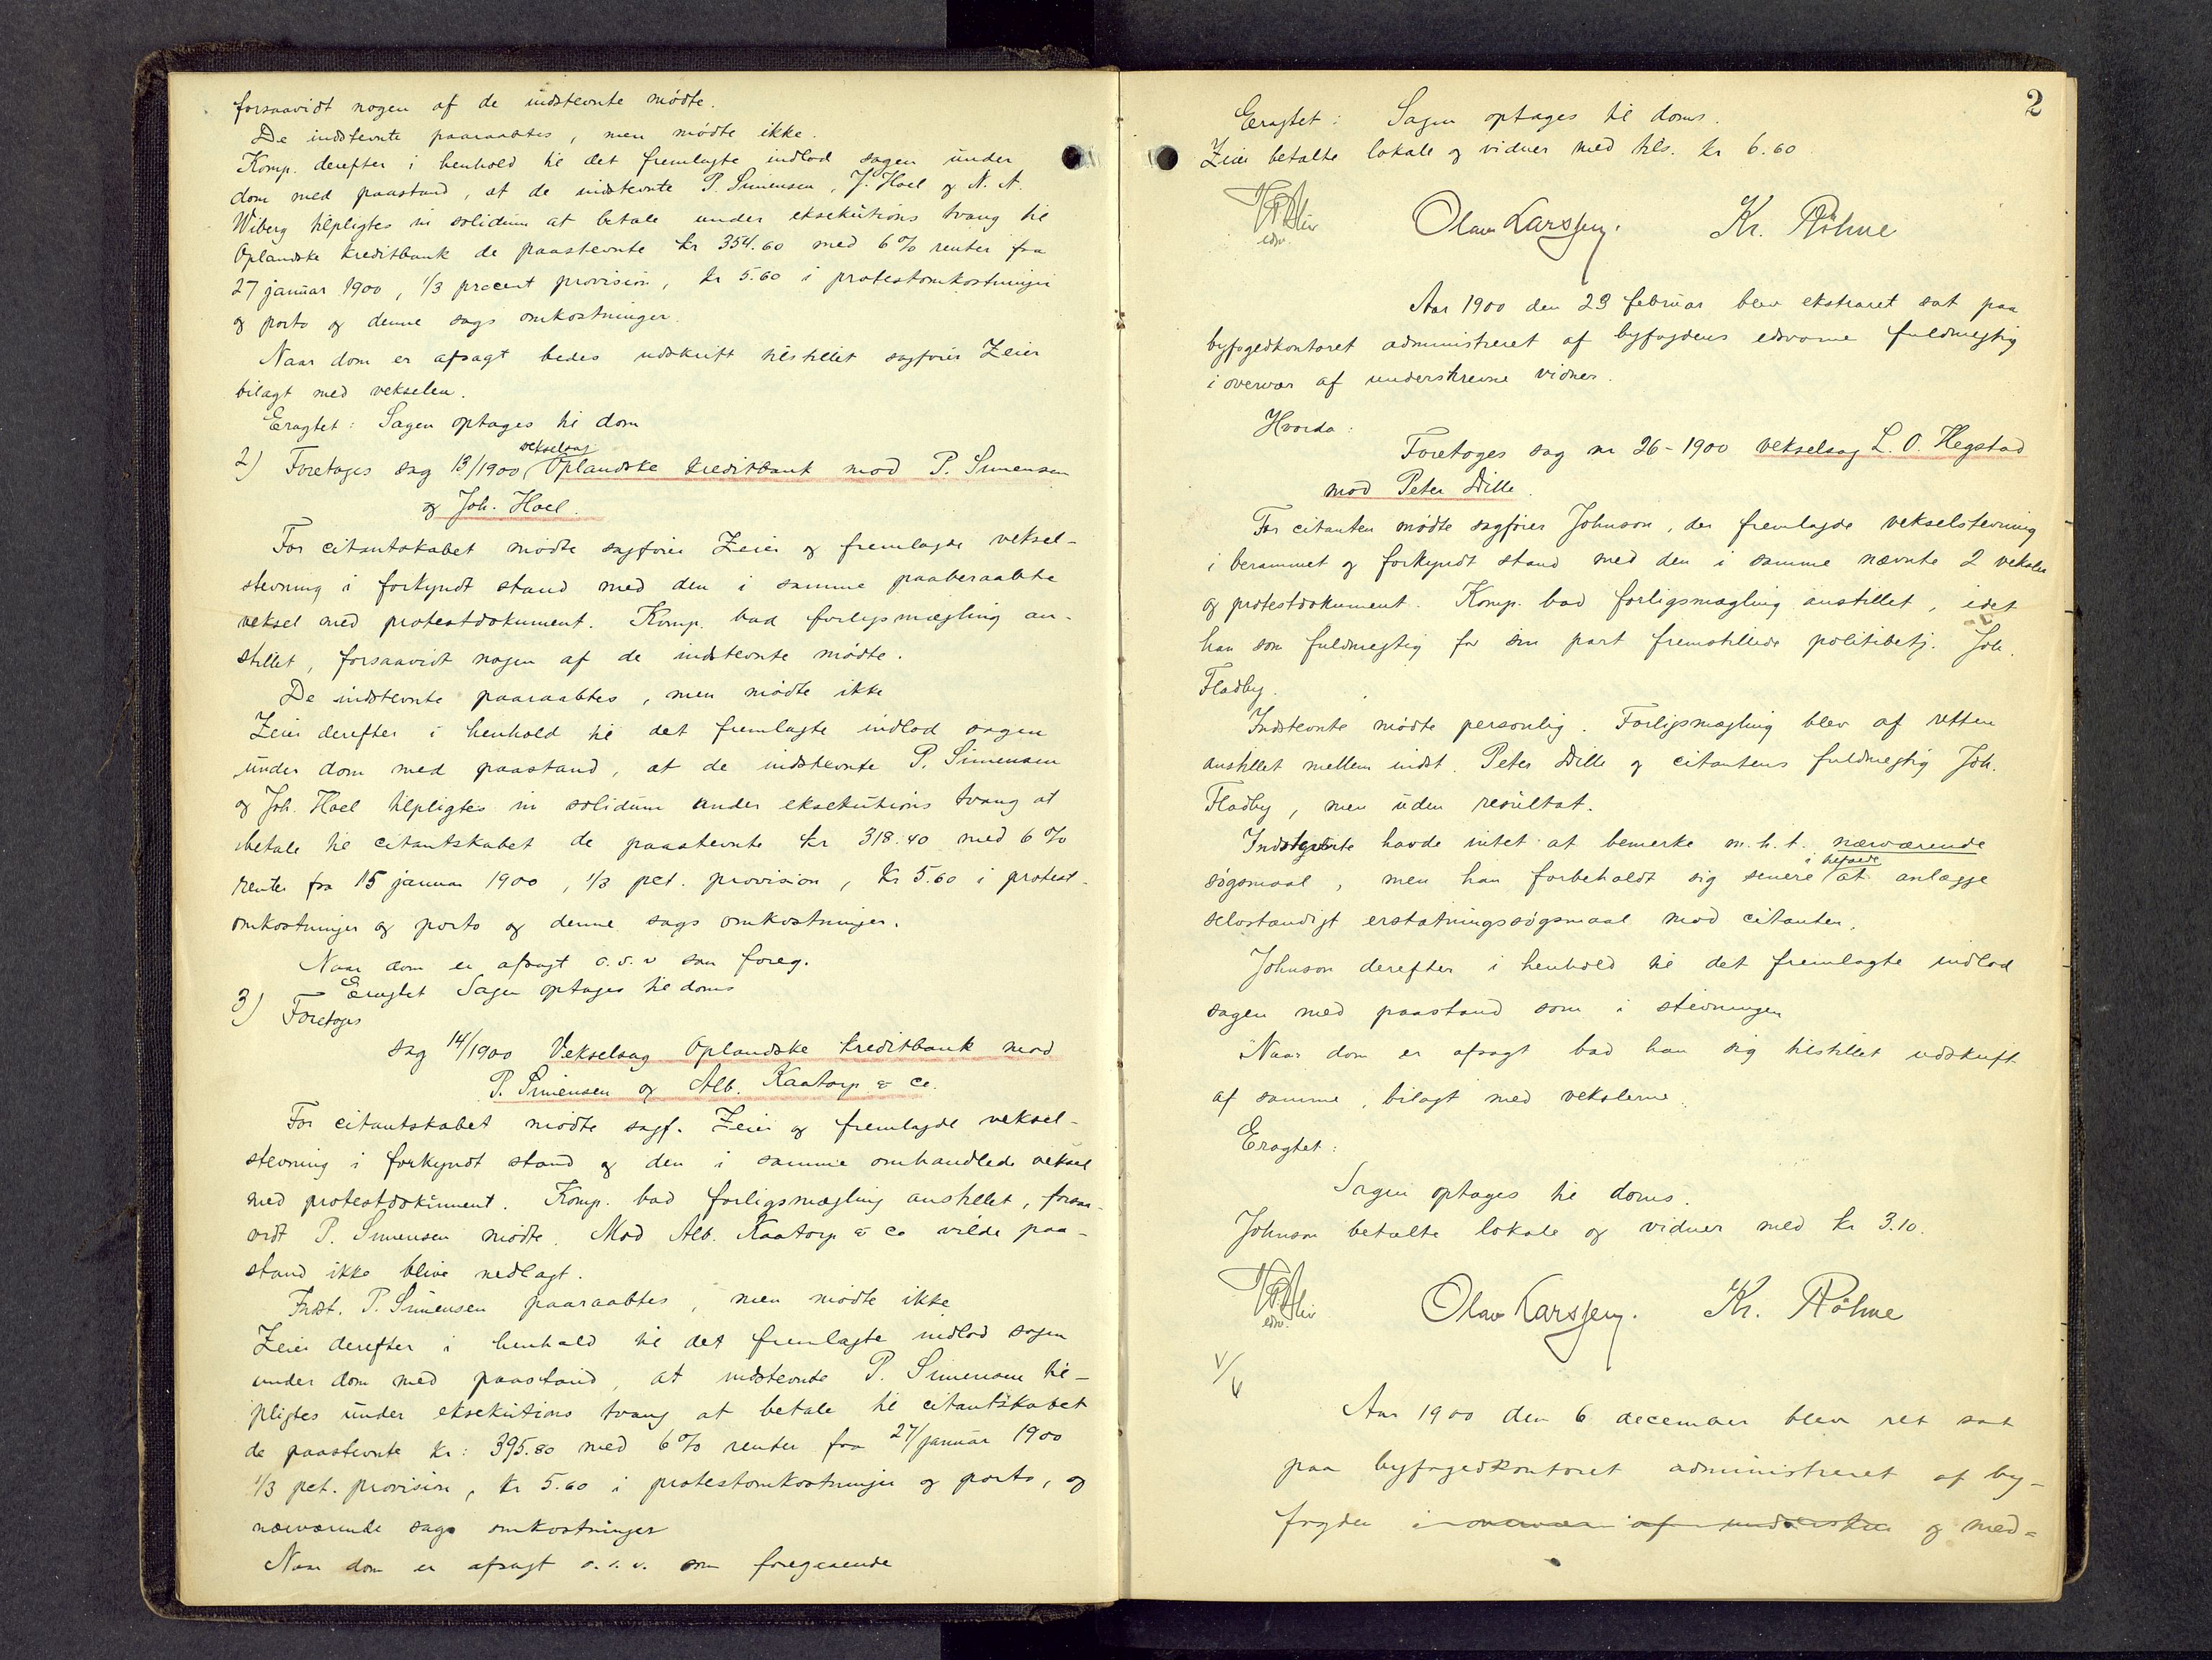 forsaavidt nogen af de indstevnte mødte.
De indstevnte paaraabtes, men mødte ikke.
Komp. derefter i henhold til det fremlagte indlod sagen under
dom med paastand, at de indstevnte P. Simensen, J. Hoel og N. A.
Wiberg tilpligtes in solidum at betale under eksekutions tvang til
Oplandske kreditbank de paastevnte kr 354.60 med 6% renter fra
27 januar 1900, 1/3 procent provision, kr 5.60 i protestomkostninger
og porto og denne sags omkostninger.
Naar dom er afsagt bedes udskrift tilstillet sagfører Zeier
bilagt med vekselen.
Eragtet: Sagen optages til dom
2) Foretages sag 13/1900, vekselsag Oplandske kreditbank mod P. Simensen
og Joh. Hoel.
For citantskabet mødte sagfører Zeier og fremlagde veksel-
stevning i forkyndt stand med den i samme paaberaabte
veksel med protestdokument. Komp. bad forligsmægling an-
stillet, forsaavidt nogen af de indstevnte mødte.
De indstevnte paaraabtes, men mødte ikke
Zeier derefter i henhold til det fremlagte indlod sagen
under dom med paastand, at de indstevnte P. Simensen
og Joh. Hoel tilpligtes in solidum under eksekutions tvang at
betale til citantskabet de paastevnte kr 318.40 med 6%
renter fra 15 januar 1900, 1/3 pct. provision, kr 5.60 i protest-
omkostninger og porto og denne sags omkostninger.
Naar dom er afsagt o.s.v som foreg.
Eragtet Sagen optages til doms
3) Foretoges
sag 14/1900 Vekselsag Oplandske kreditbank mod
P. Simensen og Alb. Kaatorp & Co.
For citantskabet mødte sagf. Zeier og fremlagde veksel-
stevning i forkyndt stand og den i samme omhandlede veksel
med protestdokument. Komp. bad forligsmægling anstillet, forsaa-
vidt P. Simensen mødte. Mod Alb. Kaatorp & Co vilde paa-
stand ikke blive nedlagt.
Indst. P. Simensen paaraabtes, men mødte ikke
Zeier derefter i henhold til det fremlagte indlod sagen
under dom med paastand, at indstevnte P. Simensen til-
pligtes under eksekutions tvang at betale til citantskabet
de paastevnte kr: 395.80 med 6% renter fra 27/januar 1900
1/3 pct. provision, kr 5.60 i protestomkostninger og porto, og
nærværende sags omkostninger
Naar dom er afsagt o.s.v. som foregaaende
2
Eragtet: Sagen optages til doms.
Zeier betalte lokale og vidner med tils. kr 6.60
edsv.
Olav Larssen. Kr. Røhne
Aar 1900 den 23 februar blev ekstraret sat paa
byfogedkontoret administreret af byfogdens edsvorne fuldmegtig
i overvær af underskrevne vidner.
Hvorda:
Foretoges sag nr 26-1900 vekselsag L. O. Hegstad
mod Peter Dille.
For citanten mødte sagfører Johnson, der fremlagde vekselstevning
i berammet og forkyndt stand med den i samme nævnte 2 veksler
og protestdokument. Komp. bad forligsmægling anstillet, idet
han som fuldmegtig for sin part fremstillede politibetj. Joh.
Fladby.
Indstevnte mødte personlig. Forligsmægling blev af retten
anstillet mellem indst. Peter Dille og citantens fuldmegtig Joh.
Fladby, men uden resultat.
Indstevnte havde intet at bemerke m.h.t. nærværende
søgsmaal, men han forbeholdt sig senere i tilfælde at anlægge
selvstændigt erstatningssøgsmaal mod citanten.
Johnson derefter i henhold til det fremlagte indlod
sagen med paastand som i stevningen
Naar dom er afsagt bad han sig tilstillet udskrift
af samme, bilagt med vekslerne.
Eragtet:
Sagen optages til doms.
Johnson betalte lokale og vidner med kr 3.10.
edsv.
Olav Larssen. Kr. Røhne
Aar 1900 den 6 december blev ret sat
paa byfogedkontoret administreret af by-
fogden i overvær af underskr og med-